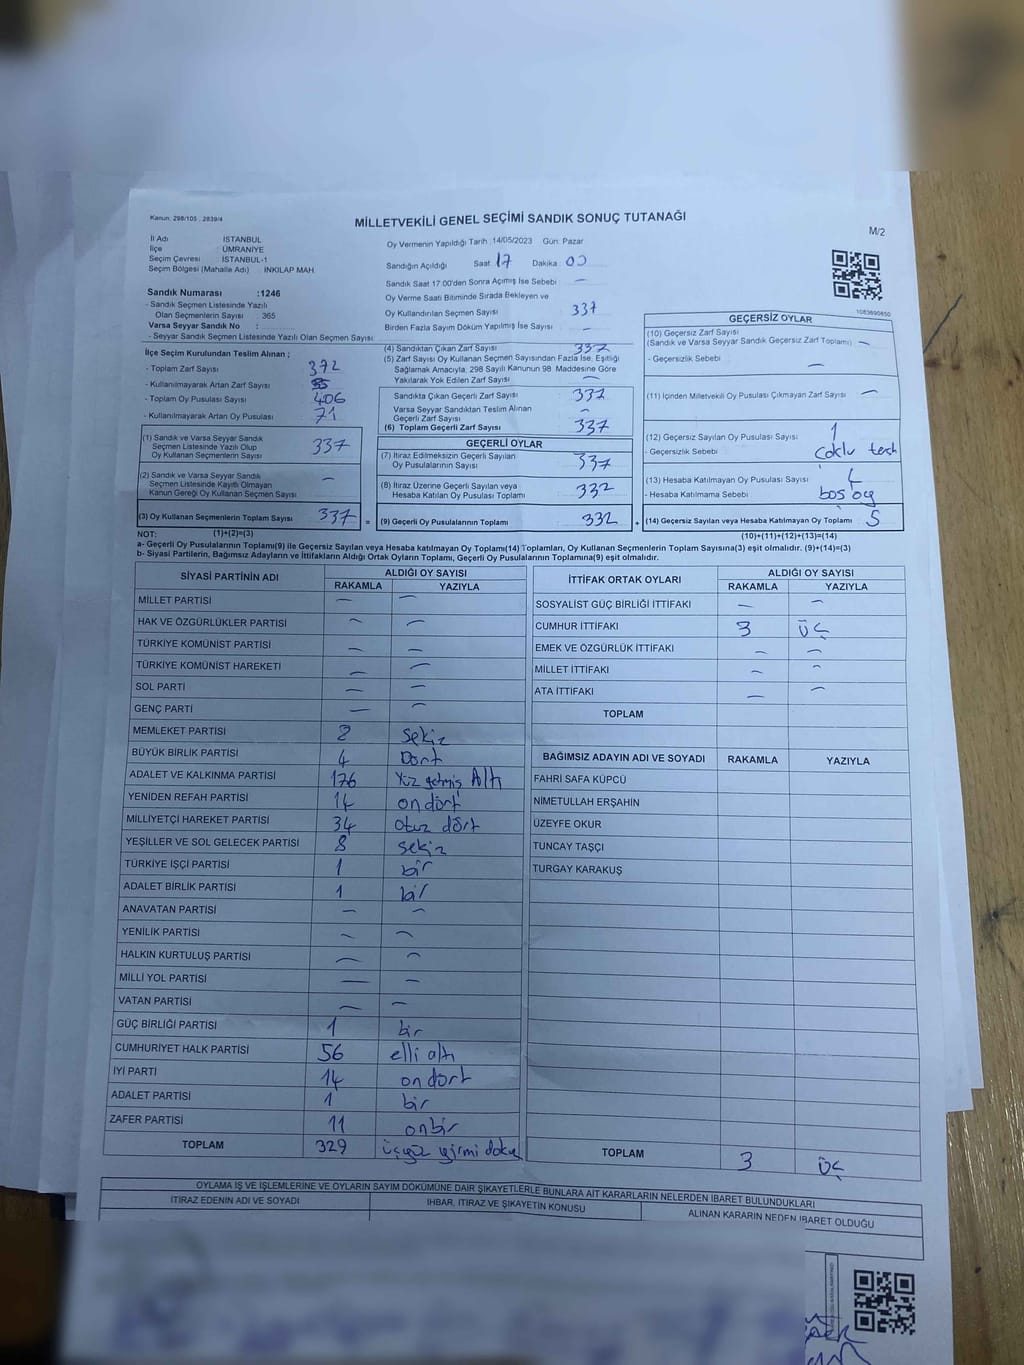 Kanun: 298/105 , 2839/4
MİLLETVEKİLİ GENEL SEÇİMİ SANDIK SONUÇ TUTANAĞI
M/2
İl Adı : İSTANBUL
İlçe : ÜMRANİYE
Seçim Çevresi : İSTANBUL-1
Seçim Bölgesi (Mahalle Adı) : İNKILAP MAH.
Sandık Numarası :1246
- Sandık Seçmen Listesinde Yazılı
Olan Seçmenlerin Sayısı : 365
Varsa Seyyar Sandık No :
- Seyyar Sandık Seçmen Listesinde Yazılı Olan Seçmen Sayısı :
İlçe Seçim Kurulundan Teslim Alınan ;
- Toplam Zarf Sayısı : 372
- Kullanılmayarak Artan Zarf Sayısı :
- Toplam Oy Pusulası Sayısı : 406
- Kullanılmayarak Artan Oy Pusulası : 71
(1) Sandık ve Varsa Seyyar Sandık
Seçmen Listesinde Yazılı Olup
Oy Kullanan Seçmenlerin Sayısı 337
(2) Sandık ve Varsa Seyyar Sandık
Seçmen Listesinde Kayıtlı Olmayan
Kanun Gereği Oy Kullanan Seçmen Sayısı —
(3) Oy Kullanan Seçmenlerin Toplam Sayısı 337 =
Oy Vermenin Yapıldığı Tarih :14/05/2023 Gün: Pazar
Sandığın Açıldığı Saat 17 Dakika 00
Sandık Saat 17:00'den Sonra Açımış İse Sebebi : —
Oy Verme Saati Bitiminde Sırada Bekleyen ve
Oy Kullandırılan Seçmen Sayısı : 337
Birden Fazla Sayım Döküm Yapılmış İse Sayısı : —
(4) Sandıktan Çıkan Zarf Sayısı : 337
(5) Zarf Sayısı Oy Kullanan Seçmen Sayısından Fazla İse, Eşitliği
Sağlamak Amacıyla; 298 Sayılı Kanunun 98. Maddesine Göre
Yakılarak Yok Edilen Zarf Sayısı : —
Sandıkta Çıkan Geçerli Zarf Sayısı : 337
Varsa Seyyar Sandıktan Teslim Alınan
Geçerli Zarf Sayısı : —
(6) Toplam Geçerli Zarf Sayısı : 337
GEÇERLİ OYLAR
(7) İtiraz Edilmeksizin Geçerli Sayılan
Oy Pusulalarının Sayısı : 337
(8) İtiraz Üzerine Geçerli Sayılan veya
Hesaba Katılan Oy Pusulası Toplamı : 332
(9) Geçerli Oy Pusulalarının Toplamı : 332 +
1083690650
GEÇERSİZ OYLAR
(10) Geçersiz Zarf Sayısı
(Sandık ve Varsa Seyyar Sandık Geçersiz Zarf Toplamı) : —
- Geçersizlik Sebebi : —
(11) İçinden Milletvekili Oy Pusulası Çıkmayan Zarf Sayısı : —
(12) Geçersiz Sayılan Oy Pusulası Sayısı : 1
- Geçersizlik Sebebi : çoklu
(13) Hesaba Katılmayan Oy Pusulası Sayısı :
- Hesaba Katılmama Sebebi : boş oy
(14) Geçersiz Sayılan veya Hesaba Katılmayan Oy Toplamı : 5
NOT: (1)+(2)=(3) (10)+(11)+(12)+(13)=(14)
a- Geçerli Oy Pusulalarının Toplamı(9) ile Geçersiz Sayılan veya Hesaba katılmayan Oy Toplamı(14) Toplamları, Oy Kullanan Seçmenlerin Toplam Sayısına(3) eşit olmalıdır. (9)+(14)=(3)
b- Siyasi Partilerin, Bağımsız Adayların ve İttifakların Aldığı Ortak Oyların Toplamı, Geçerli Oy Pusulalarının Toplamına(9) eşit olmalıdır.
SİYASİ PARTİNİN ADI ALDIĞI OY SAYISI
RAKAMLA YAZIYLA
MİLLET PARTİSİ — —
HAK VE ÖZGÜRLÜKLER PARTİSİ — —
TÜRKİYE KOMÜNİST PARTİSİ — —
TÜRKİYE KOMÜNİST HAREKETİ — —
SOL PARTİ — —
GENÇ PARTİ — —
MEMLEKET PARTİSİ 8 sekiz
BÜYÜK BİRLİK PARTİSİ 4 Dört
ADALET VE KALKINMA PARTİSİ 176 Yüz yetmiş Altı
YENİDEN REFAH PARTİSİ 14 on dört
MİLLİYETÇİ HAREKET PARTİSİ 34 otuz dört
YEŞİLLER VE SOL GELECEK PARTİSİ 8 sekiz
TÜRKİYE İŞÇİ PARTİSİ 1 bir
ADALET BİRLİK PARTİSİ 1 bir
ANAVATAN PARTİSİ — —
YENİLİK PARTİSİ — —
HALKIN KURTULUŞ PARTİSİ — —
MİLLİ YOL PARTİSİ — —
VATAN PARTİSİ — —
GÜÇ BİRLİĞİ PARTİSİ 1 bir
CUMHURİYET HALK PARTİSİ 56 elli altı
İYİ PARTİ 14 on dört
ADALET PARTİSİ 1 bir
ZAFER PARTİSİ 11 onbir
TOPLAM 329 üçyüz yirmi dokuz
İTTİFAK ORTAK OYLARI ALDIĞI OY SAYISI
RAKAMLA YAZIYLA
SOSYALİST GÜÇ BİRLİĞİ İTTİFAKI — —
CUMHUR İTTİFAKI 3 üç
EMEK VE ÖZGÜRLÜK İTTİFAKI — —
MİLLET İTTİFAKI — —
ATA İTTİFAKI — —
TOPLAM
BAĞIMSIZ ADAYIN ADI VE SOYADI RAKAMLA YAZIYLA
FAHRİ SAFA KÜPCÜ
NİMETULLAH ERŞAHİN
ÜZEYFE OKUR
TUNCAY TAŞÇI
TURGAY KARAKUŞ
TOPLAM 3 üç
OYLAMA İŞ VE İŞLEMLERİNE VE OYLARIN SAYIM DÖKÜMÜNE DAİR ŞİKAYETLERLE BUNLARA AİT KARARLARIN NELERDEN İBARET BULUNDUKLARI
İTİRAZ EDENİN ADI VE SOYADI İHBAR, İTİRAZ VE ŞİKAYETİN KONUSU ALINAN KARARIN NEDEN İBARET OLDUĞU